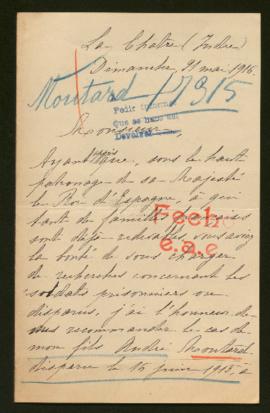 La Chatre (Indre)
Dimanche, 21 mai 1916.
Moutard 17315
Pedir informe
Que se hace aqui
Devolver
Monsieur,
Ayant appris, sous le haut
patronage de sa Majesté
le Roi d'Espagne à qui
tant de familles françaises
sont déjà redevables vous aviez
la bonté de vous charger
de recherches concernant les
soldats prisonniers ou
disparus, j'ai l'honneur de
vous recommander le cas de
mon fils André Moutard
disparu le 16 juin 1915, à
Fech.
e.a.c